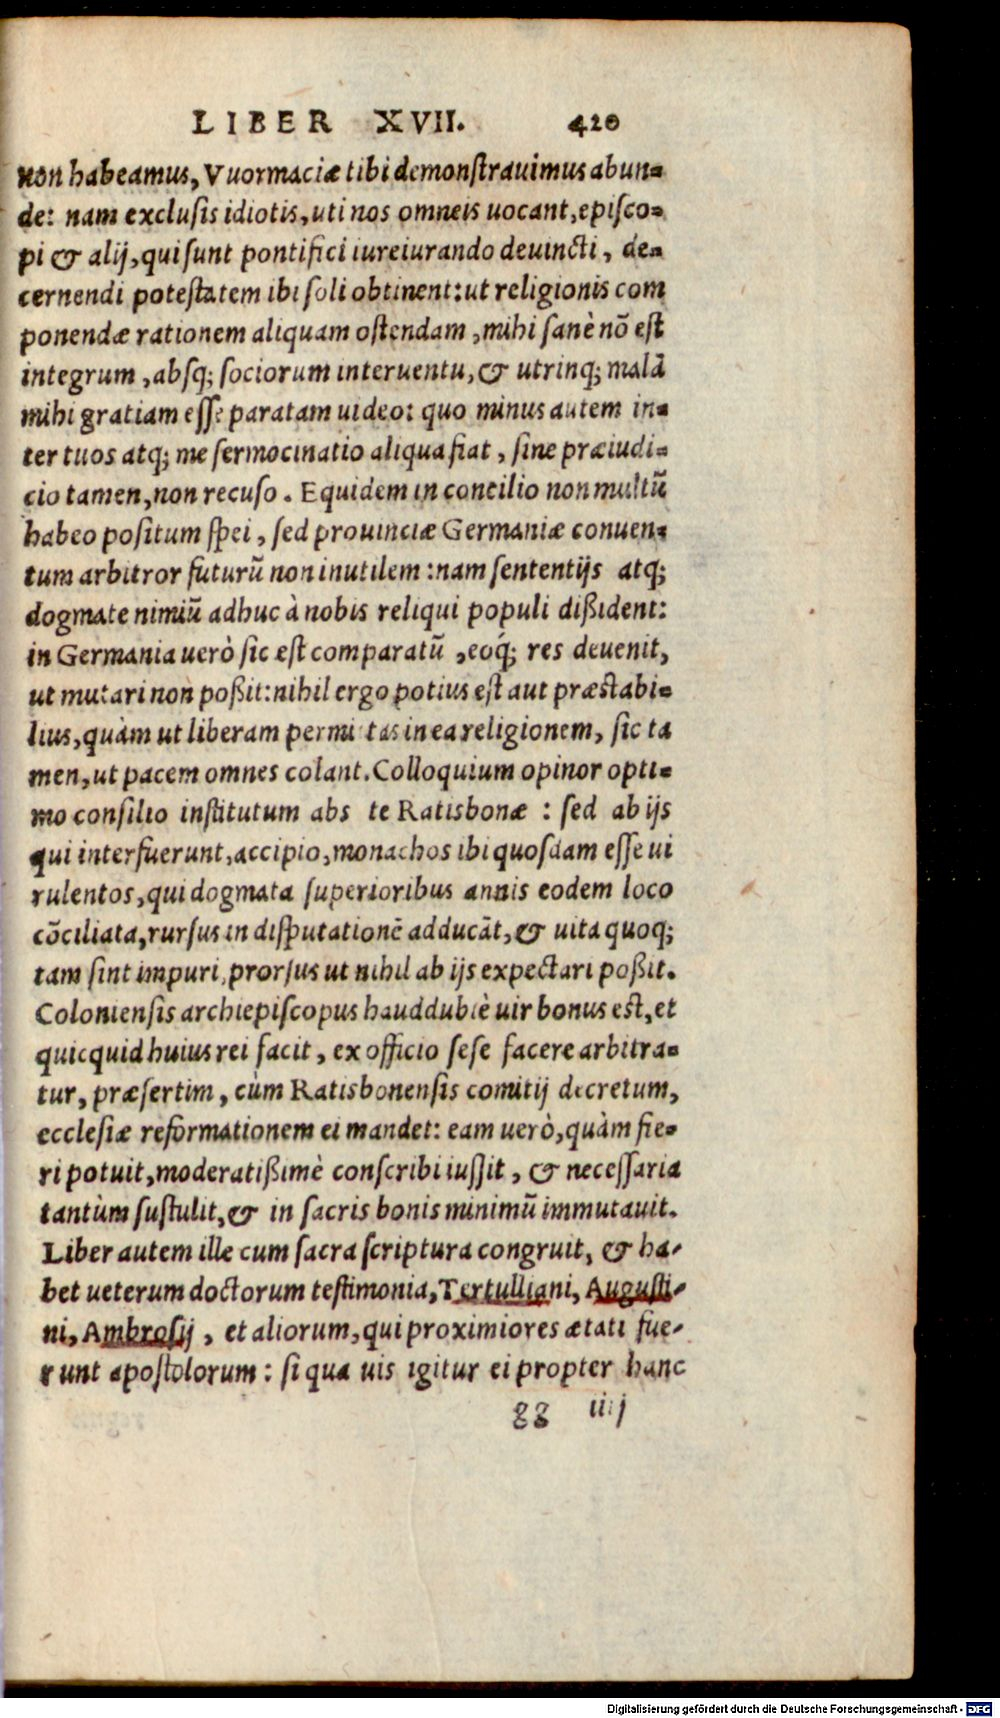 LIBER XVII. 420
non habeamus, Vuormaciæ tibi demonstrauimus abun=
de: nam exclusis idiotis, uti nos omneis uocant, episco=
pi & alij, qui sunt pontifici iureiurando deuincti, de=
cernendi potestatem ibi soli obtinent: ut religionis com
ponendæ rationem aliquam ostendam, mihi sanè nõ est
integrum, absq; sociorum interuentu, & utrinq; malã
mihi gratiam esse paratam uideo: quo minus autem in=
ter tuos atq; me sermocinatio aliqua fiat, sine præiudi=
cio tamen, non recuso. Equidem in concilio non multũ
habeo positum spei, sed prouinciæ Germaniæ conuen=
tum arbitror futurũ non inutilem: nam sententijs atq;
dogmate nimiũ adhuc à nobis reliqui populi dißident:
in Germania uerò sic est comparatũ, eoq́; res deuenit,
ut mutari non poßit: nihil ergo potius est aut præstabi=
lius, quàm ut liberam permittas in ea religionem, sic ta
men, ut pacem omnes colant. Colloquium opinor opti=
mo consilio institutum abs te Ratisbonæ : sed ab ijs
qui interfuerunt, accipio, monachos ibi quosdam esse ui
rulentos, qui dogmata superioribus annis eodem loco
cõciliata, rursus in disputationẽ adducãt, & uita quoq;
tam sint impuri, prorsus ut nihil ab ijs expectari poßit.
Coloniensis archiepiscopus haud dubiè uir bonus est, et
quicquid huius rei facit, ex officio sese facere arbitra=
tur, præsertim, cùm Ratisbonensis comitij decretum,
ecclesiæ reformationem ei mandet: eam uerò, quàm fie=
ri potuit, moderatißimè conscribi iussit, & necessaria
tantùm sustulit, & in sacris bonis minimũ immutauit.
Liber autem ille cum sacra scriptura congruit, & ha-
bet ueterum doctorum testimonia, Tertulliani, Augusti-
ni, Ambrosij, et aliorum, qui proximiores ætati fue-
runt apostolorum: si qua uis igitur ei propter hanc
gg iiij
Digitalisierung gefördert durch die Deutsche Forschungsgemeinschaft - DFG